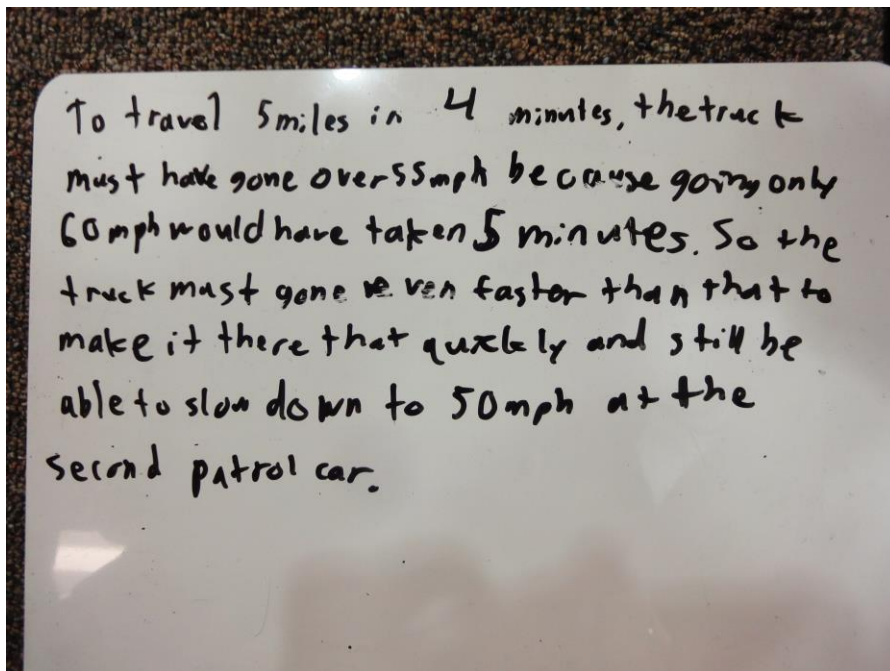 To travel 5 miles in 4 minutes, the truck
must have gone over 55mph because going only
60 mph would have taken 5 minutes. So the
truck must gone even faster than that to
make it there that quickly and still be
able to slow down to 50mph at the
second patrol car.